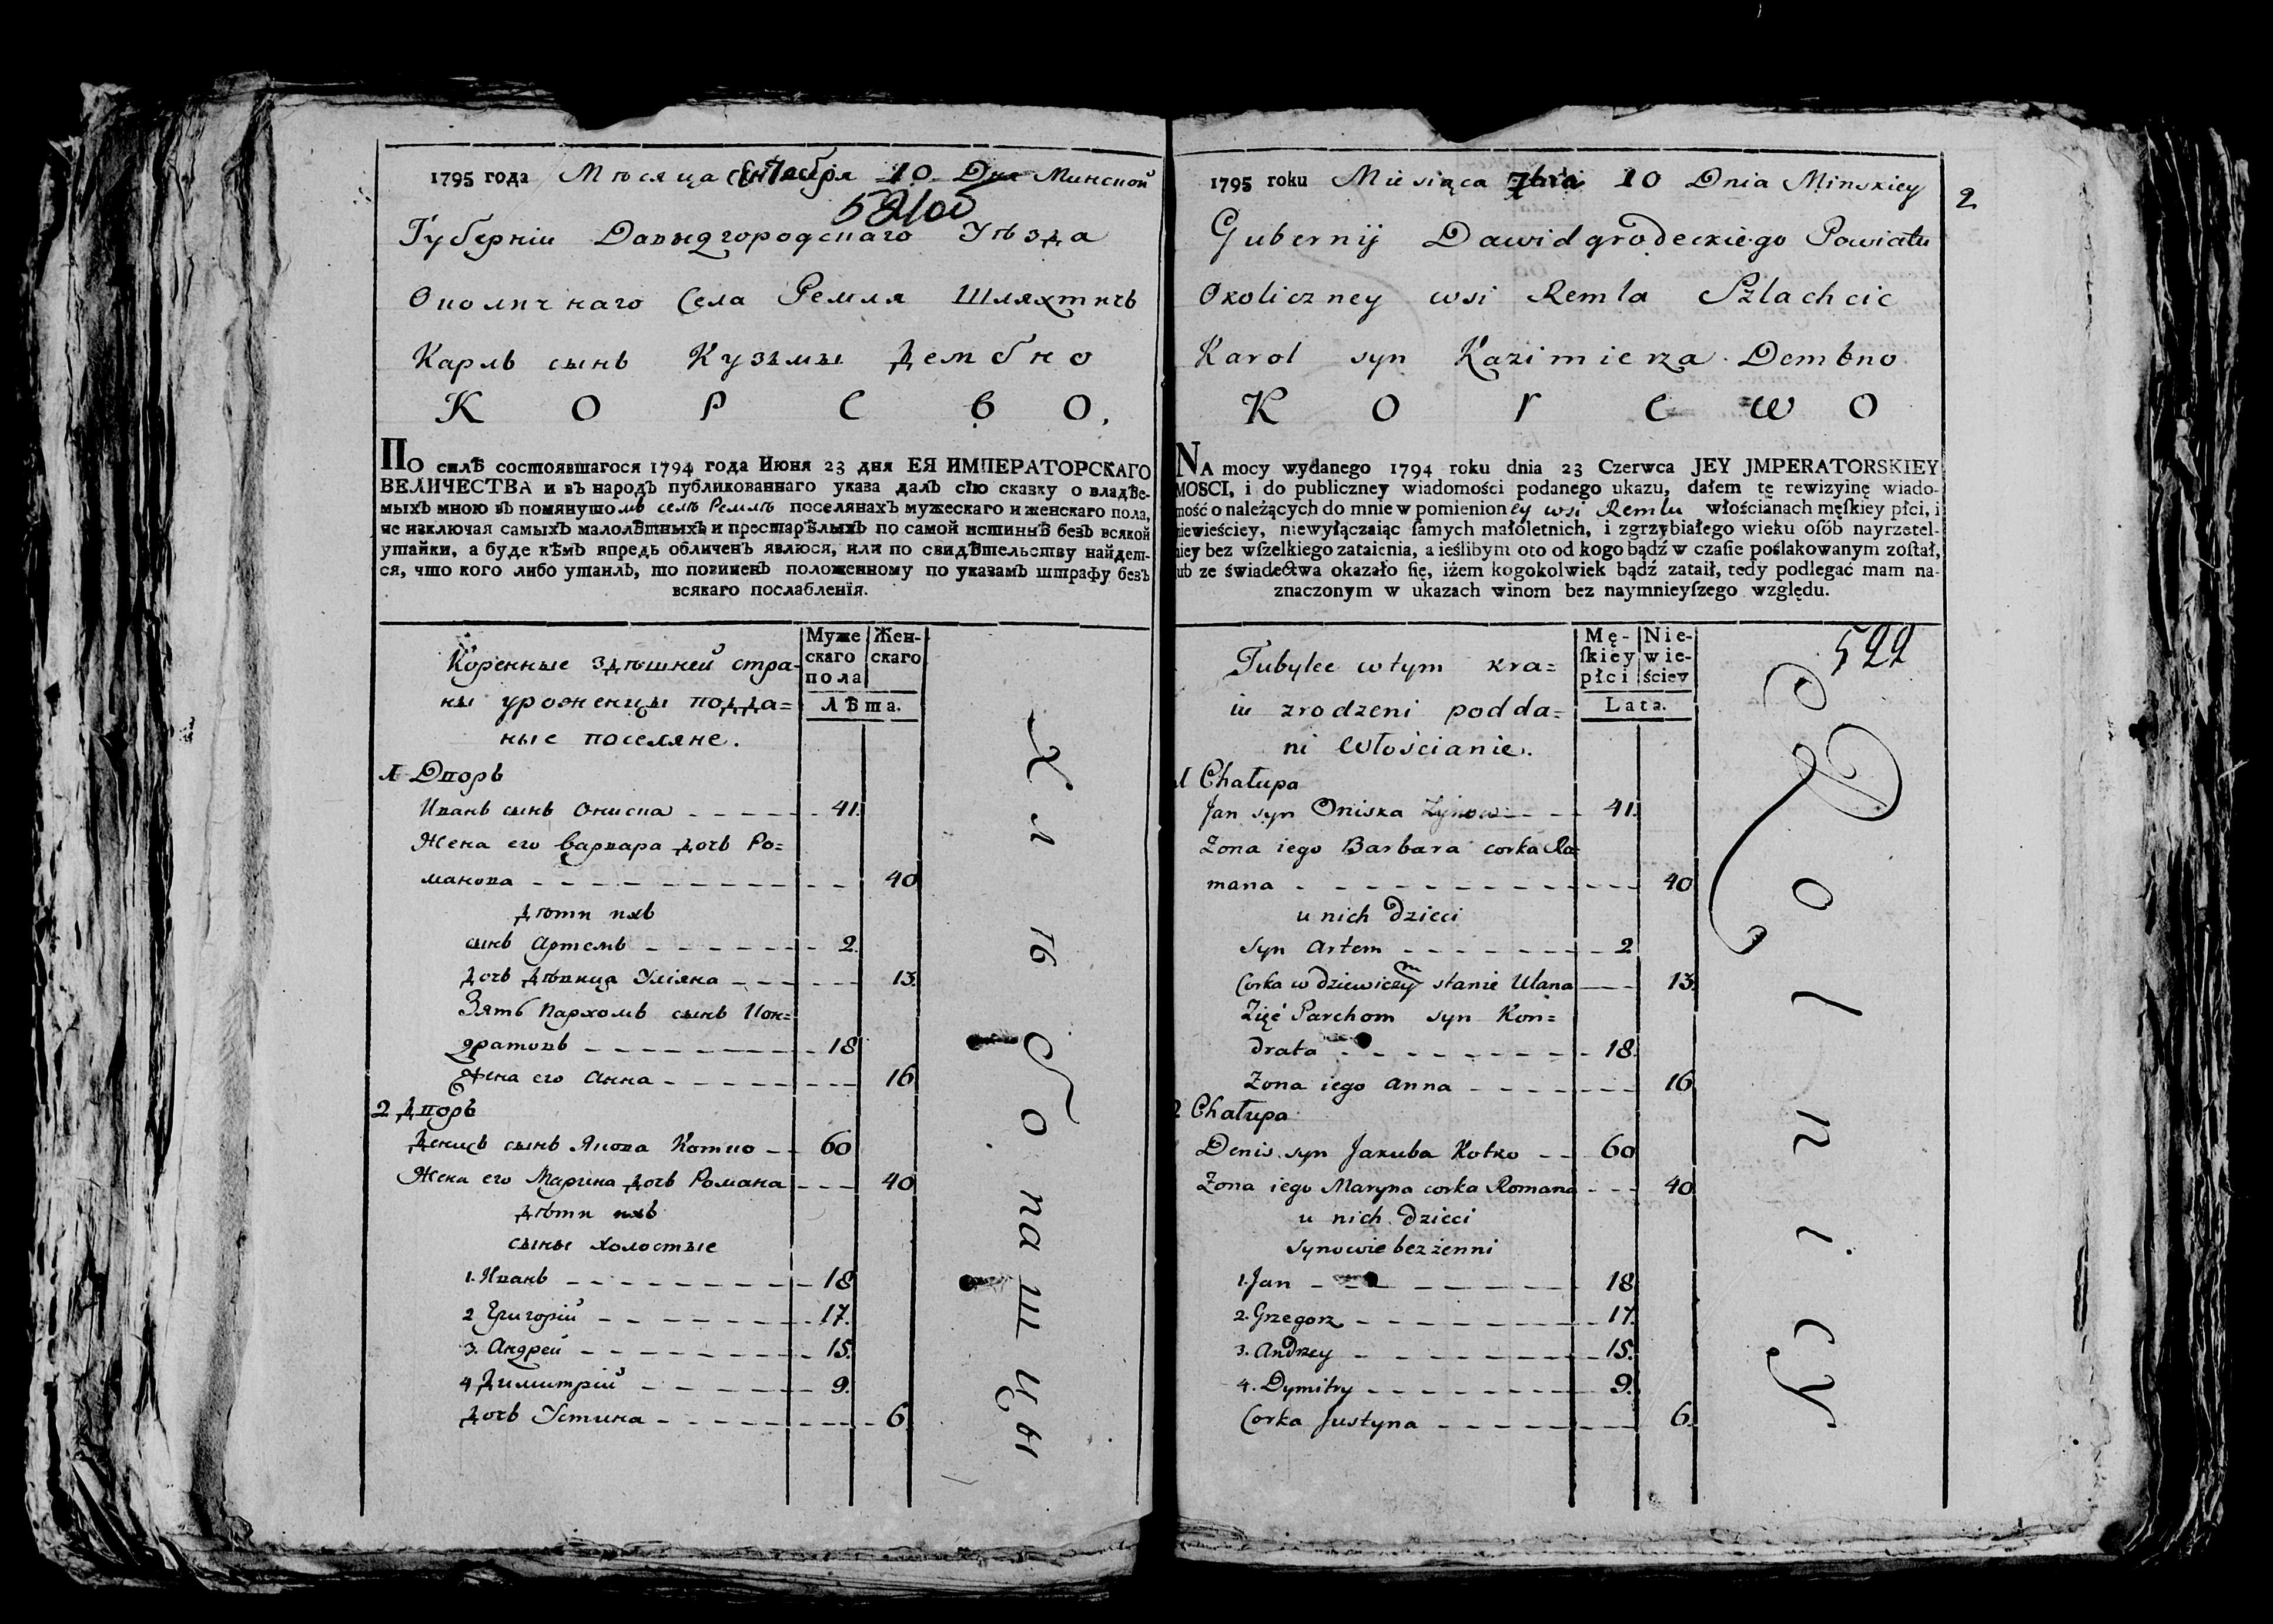 1795 года Мѣсяца Сентября 10 Дня Минской
Губернїи Давыдгородскаго Уѣзда
Околичнаго Села Ремля Шляхтичъ
Карлъ сынъ Кузьмы Дембно
К О Р С В О,
ПО силѢ состоявшагося 1794 года Июня 23 дня ЕЯ ИМПЕРАТОРСКАГО
ВЕЛИЧЕСТВА и въ народЪ публикованнаго указа далЪ сїю сказку о владѢе-
мыхЪ мною вЪ помянутомъ селѣ Ремлѣ поселянахЪ мужескаго и женскаго пола,
не изключая самыхЪ малолѢтныхЪ и престарѢлыхЪ по самой истиннѢ безЪ всякой
утайки, а буде кѢмЪ впредь обличенЪ явлюся, или по свидѢтельству найдет-
ся, что кого либо утаилЪ, то повиненЪ положенному по указамЪ штрафу безЪ
всякаго послабленїя.
Коренные здѣшней стра-
ны уроженцы подда=
ные поселяне.
Муже
скаго
пола
Жен-
скаго
ЛѢта.
1 Дворъ
Иванъ сынъ Ониска 41.
Жена его Варвара дочь Ро=
манова 40
дѣти ихъ
сынъ Артемъ 2.
дочь дѣвица Улїяна 13.
Зять Пархомъ сынъ Кон=
дратовъ 18
Жена его Анна 16
2 Дворъ
Денисъ сынъ Якова Котко 60
Жена его Марина дочь Романа 40
дѣти ихъ
сыны холостые
1. Иванъ 18
2 Григорїй 17.
3. Андрей 15.
4 Димитрїй 9.
дочь Устина 6
Хлѣбопашцы
1795 roku Miesiąca 7bra 10 Dnia Minskiey
2
Gubernij Dawidgrodeckiego Powiatu
Okoliczney wsi Remla Szlachcic
Karol syn Kazimierza Dembno
K O r s w O
NA mocy wydanego 1794 roku dnia 23 Czerwca JEY JMPERATORSKIEY
MOSCI, i do publiczney wiadomości podanego ukazu, dałem tę rewizyinę wiado-
mość o należących do mnie w pomienioney wsi Remlu włościanach męſkiey płci, i
niewieściey, niewyłączaiąc ſamych małoletnich, i zgrzybiałego wieku oſób nayrzetel-
niey bez wſzelkiego zataienia, a ieślibym oto od kogo bądź w czaſie poślakowanym zoſtał,
lub ze świadectwa okazało ſię, iżem kogokolwiek bądź zataił, tedy podlegać mam na-
znaczonym w ukazach winom bez naymnieyſzego względu.
Tubylce wtym kra=
iu zrodzeni podda=
ni Włościanie.
Mę-
ſkiey
płci
Nie-
wie-
ściey
Lata.
522
1 Chałupa
Jan syn Oniska 41.
Zona iego Barbara corka Ro=
mana 40
u nich dzieci
syn Artem 2
Corka w dziewiczym stanie Ulana 13.
Zięć Parchom syn Kon=
drata 18.
Zona iego Anna 16
2 Chałupa
Denis syn Jakuba Kotko 60
Zona iego Maryna corka Romana 40
u nich dzieci
synowie bezżenni
1. Jan 18
2. Grzegorz 17.
3. Andrzey 15.
4. Dymitry 9.
Corka Justyna 6.
Rolnicy